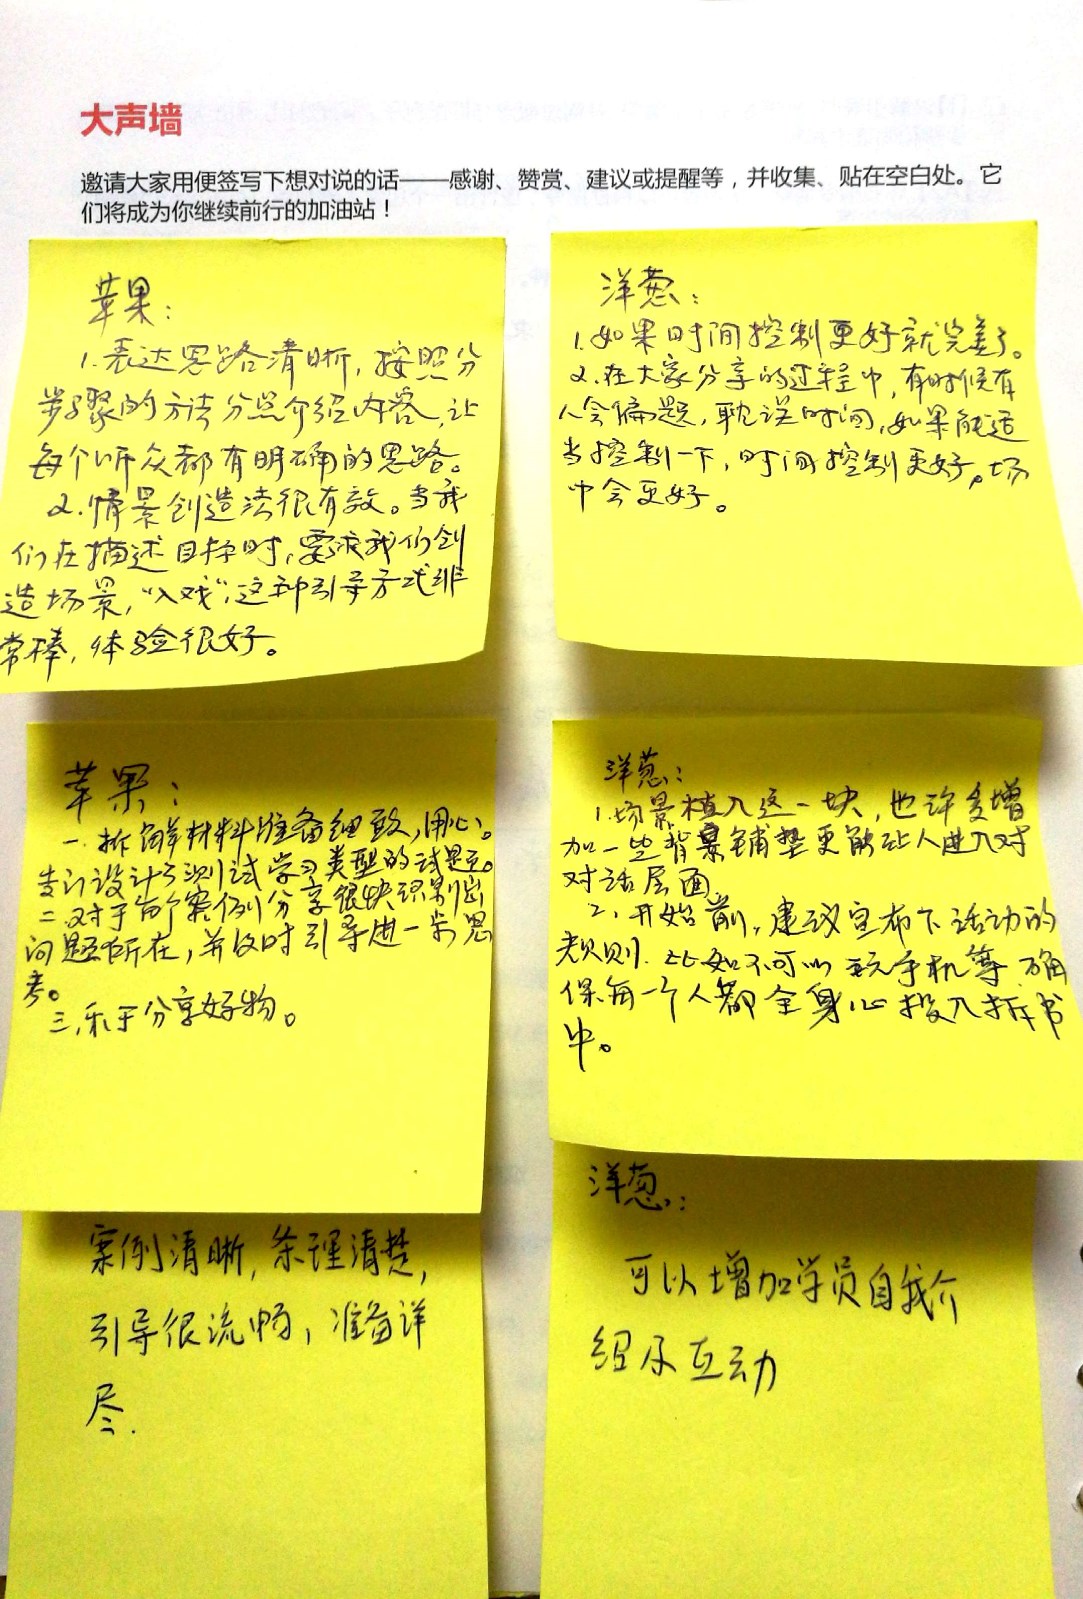 大声墙
邀请大家用便签写下想对说的话——感谢、赞赏、建议或提醒等，并收集、贴在空白处。它
们将成为你继续前行的加油站！
苹果：
1.表达思路清晰，按照分
步骤的方法分点介绍内容，让
每个听众都有明确的思路。
2.情景创造法很有效。当我
们在描述目标时，要求我们创
造场景，“入戏”，这种引导方式非
常棒，体验很好。
洋葱：
1.如果时间控制更好就完美了。
2.在大家分享的过程中，有时候有
人会偏题，耽误时间，如果能适
当控制一下，时间控制更好，场
中会更好。
苹果：
一.拆解材料准备细致，用心。
专门设计了测试学习类型的试题。
二.对于每个案例分享很快识别出
问题所在，并及时引导进一步思
考。
三，乐于分享好物。
洋葱：
1.场景植入这一块，也许多增
加一些背景铺垫更能让人进入对
对话层面。
2、开始前，建议宣布下活动的
规则.比如不可以玩手机等.确
保每一个人都全身心投入拆书
中。
案例清晰，条理清楚，
引导很流畅，准备详
尽.
洋葱：
可以增加学员自我介
绍及互动